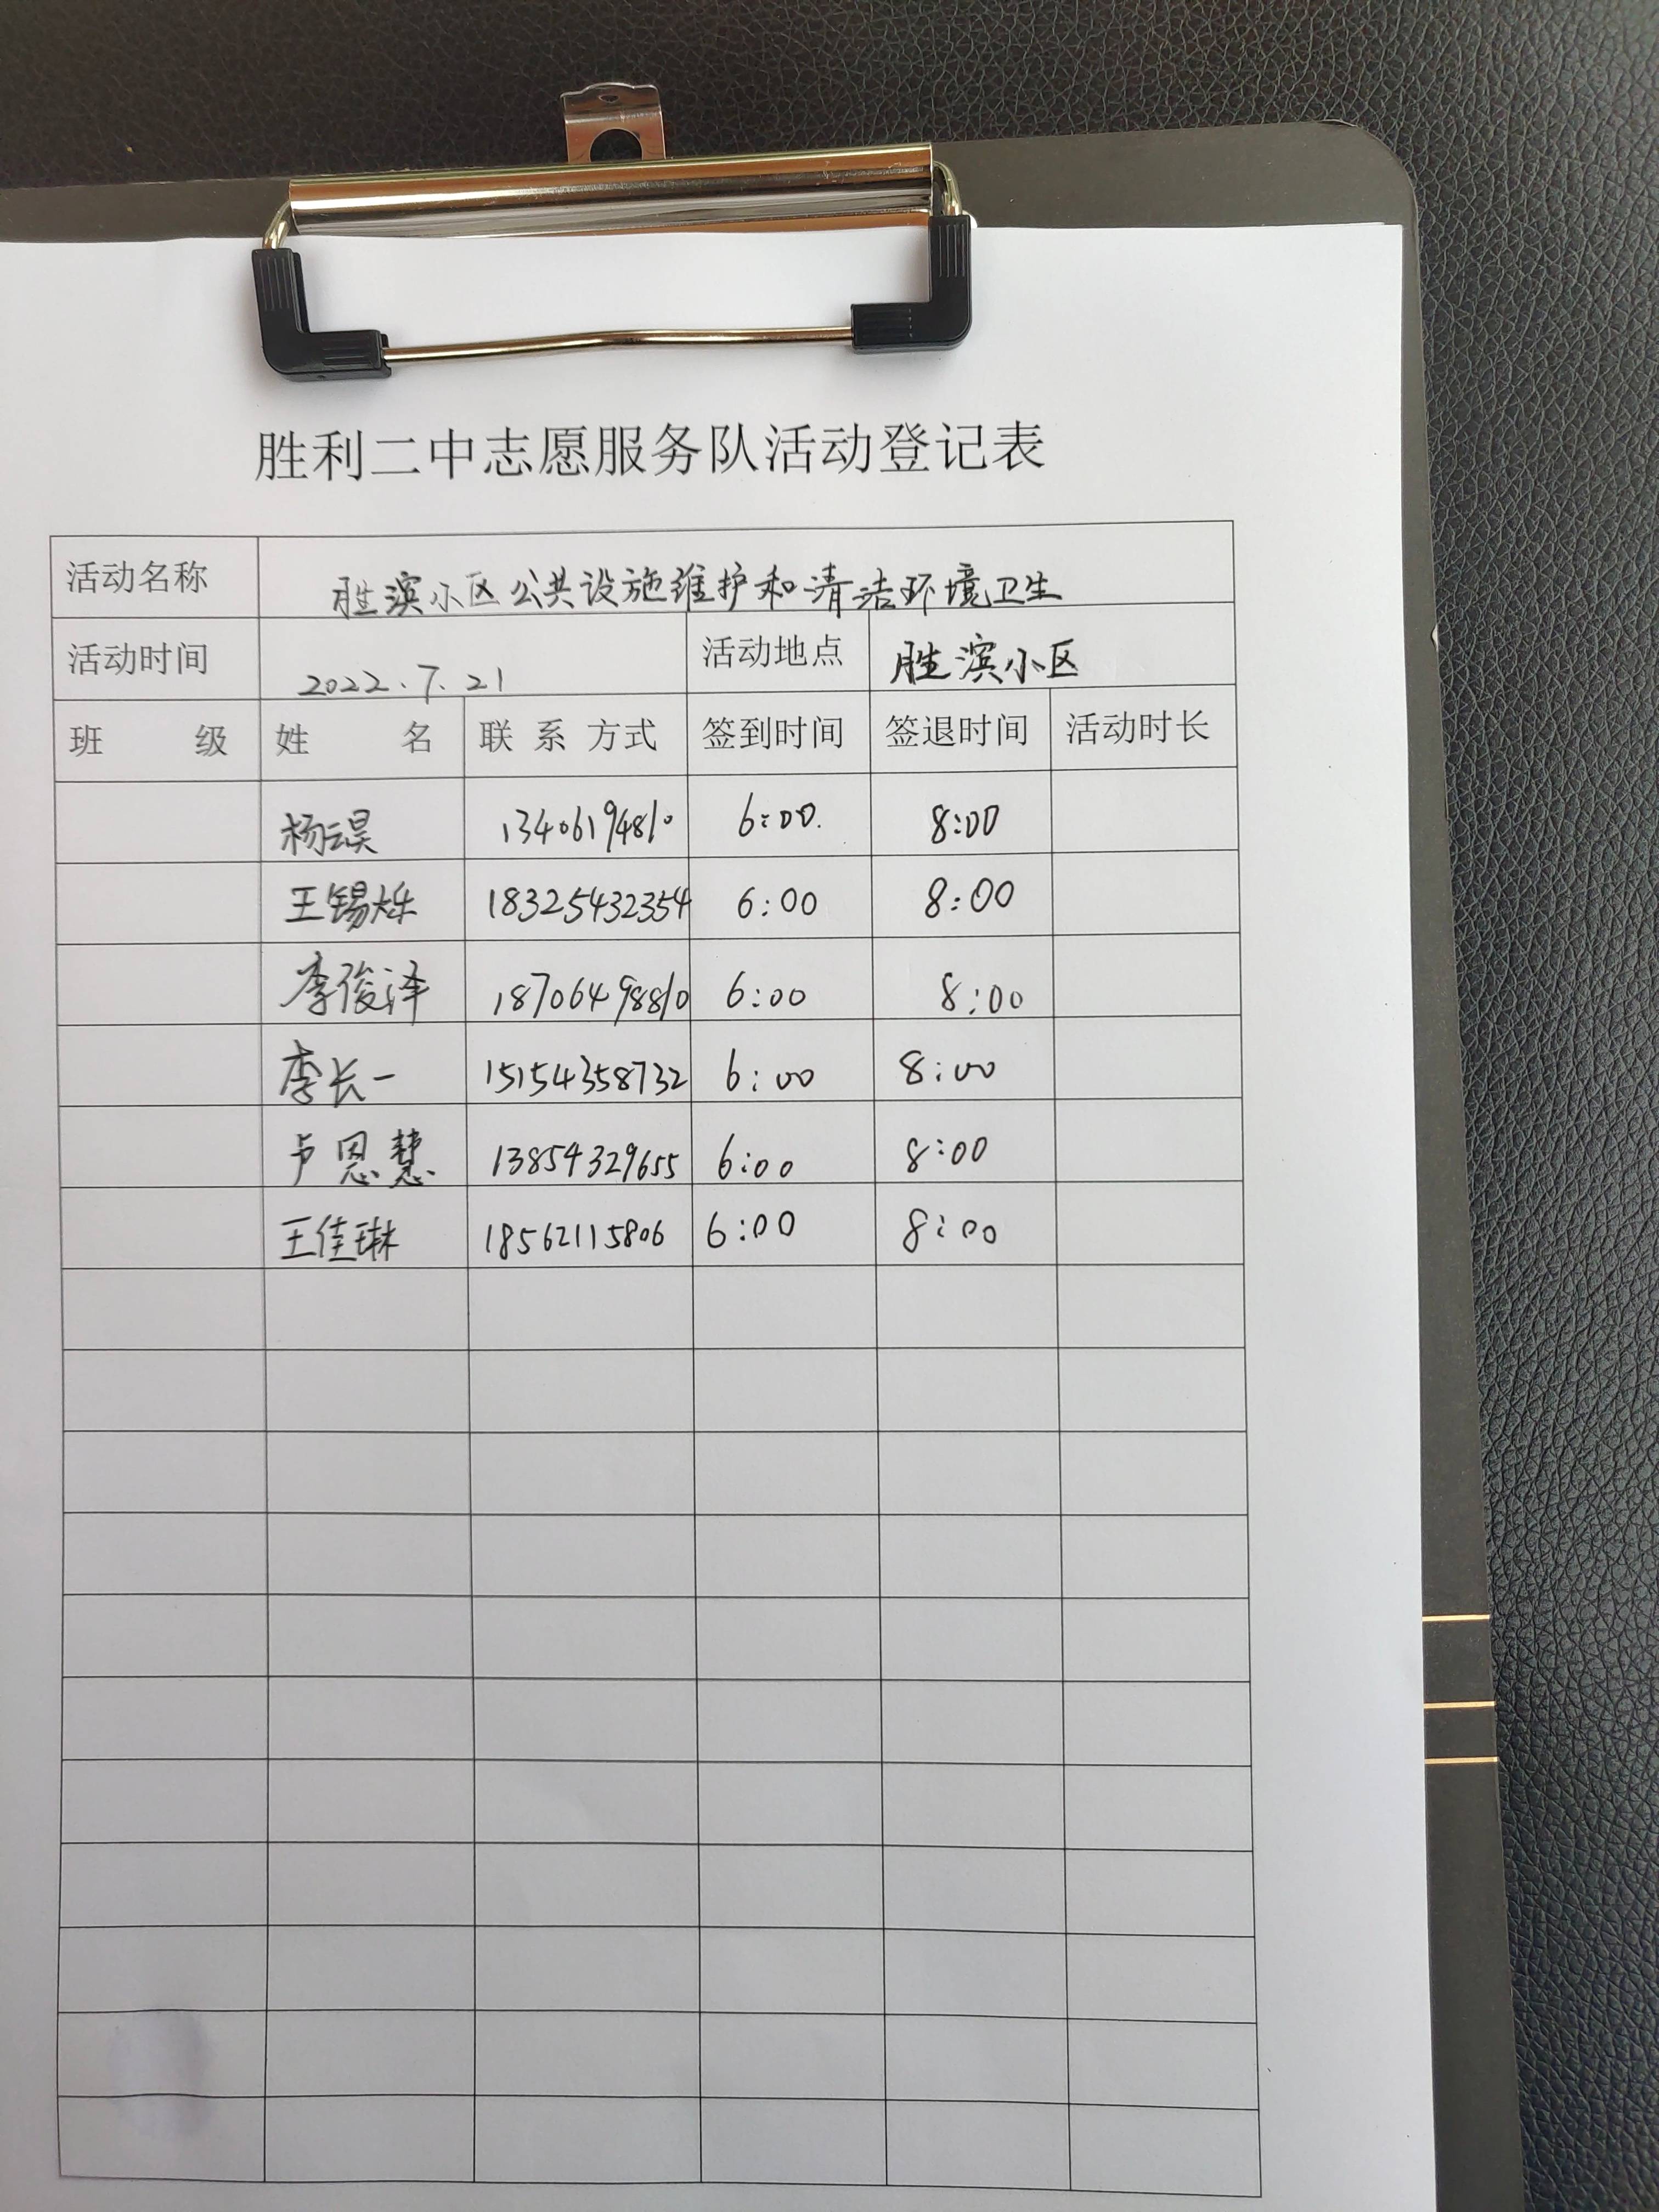 胜利二中志愿服务队活动登记表
活动名称 胜滨小区公共设施维护和清洁环境卫生
活动时间 2022.7.21 活动地点 胜滨小区
班 级 姓 名 联 系 方式 签到时间 签退时间 活动时长
杨淏 13406194810 6:00. 8:00
王锡烁 18325432354 6:00 8:00
李俊泽 18706498810 6:00 8:00
李长一 15154358732 6:00 8:00
卢恩慧 13854329655 6:00 8:00
王佳琳 18562115806 6:00 8:00